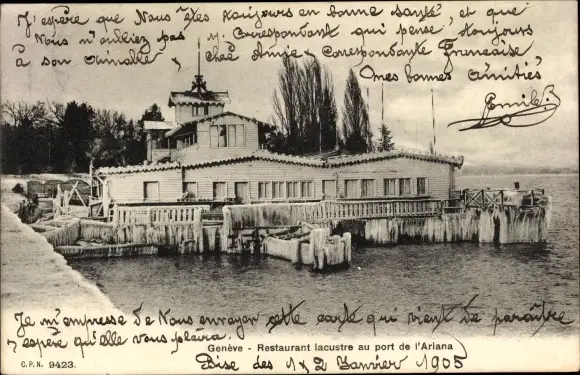 J'espère que Nous êtes toujours en bonne santé, et que
Nous n'oubliez pas v. Correspondant qui pense toujours
à son aimable chèè Amie & Correspondante Francaise
Mes bonnes amitiés
Emile B.
Je m'empresse de Nous envoyer cette carte qui vient de paraître
j'espère qu'elle vous plaira.
Genève - Restaurant lacustre au port de l'Ariana
C.P.N. 9423.
Bise des 1 & 2 Janvier 1905